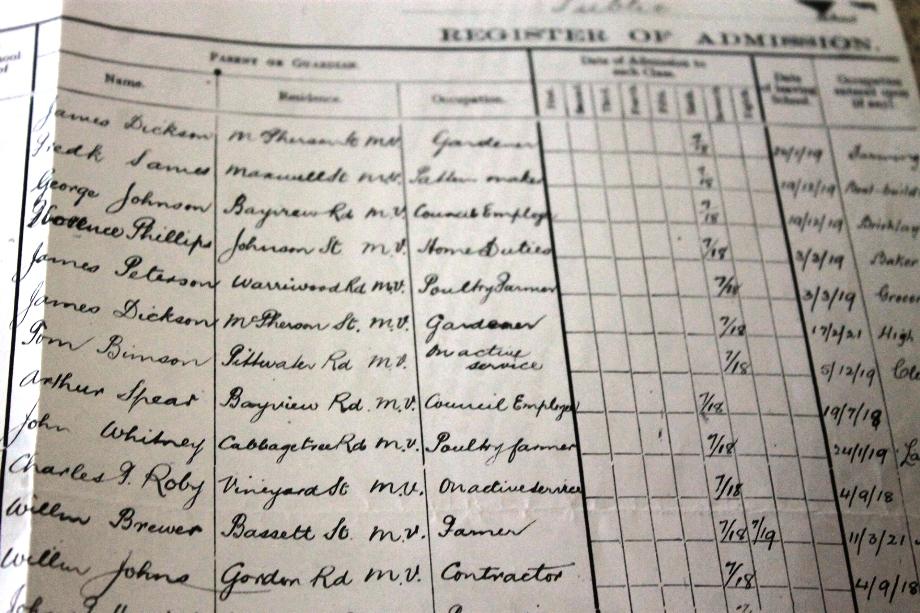 Public
School
REGISTER OF ADMISSION.
PARENT OR GUARDIAN.
Date of Admission to each Class.
Date of leaving School.
Occupation entered upon (if any).
Name. Residence. Occupation.
James Dickson McPherson St M.V. Gardener 7/18 Farming
James Maxwell St M.V. maker 7/18 19/12/19 Boat build
George Johnson Bayview Rd M.V. Council Employe 7/18 19/12/19 Bricklay
Phillips Johnson St M.V. Home Duties 7/18 3/3/19 Baker
James Peterson Warriwood Rd M.V. Poultry Farmer 7/18 3/3/19 Grocer
James Dickson McPherson St. M.V. Gardener 7/18 17/2/21 High
Tom Bimson Pittwater Rd M.V. On active service 7/18 5/12/19
Arthur Spear Bayview Rd. M.V. Council Employe 7/18 19/7/18
John Whitney Cabbagetree Rd M.V. Poultry farmer 7/18 24/1/19 La
Charles F. Roby Vineyard St M.V. On active service 7/18 4/9/18
Willm Brewer Bassett St. M.V. Farmer 7/18 7/19 11/3/21
Willm Johns Gordon Rd M.V. Contractor 7/18 4/9/18